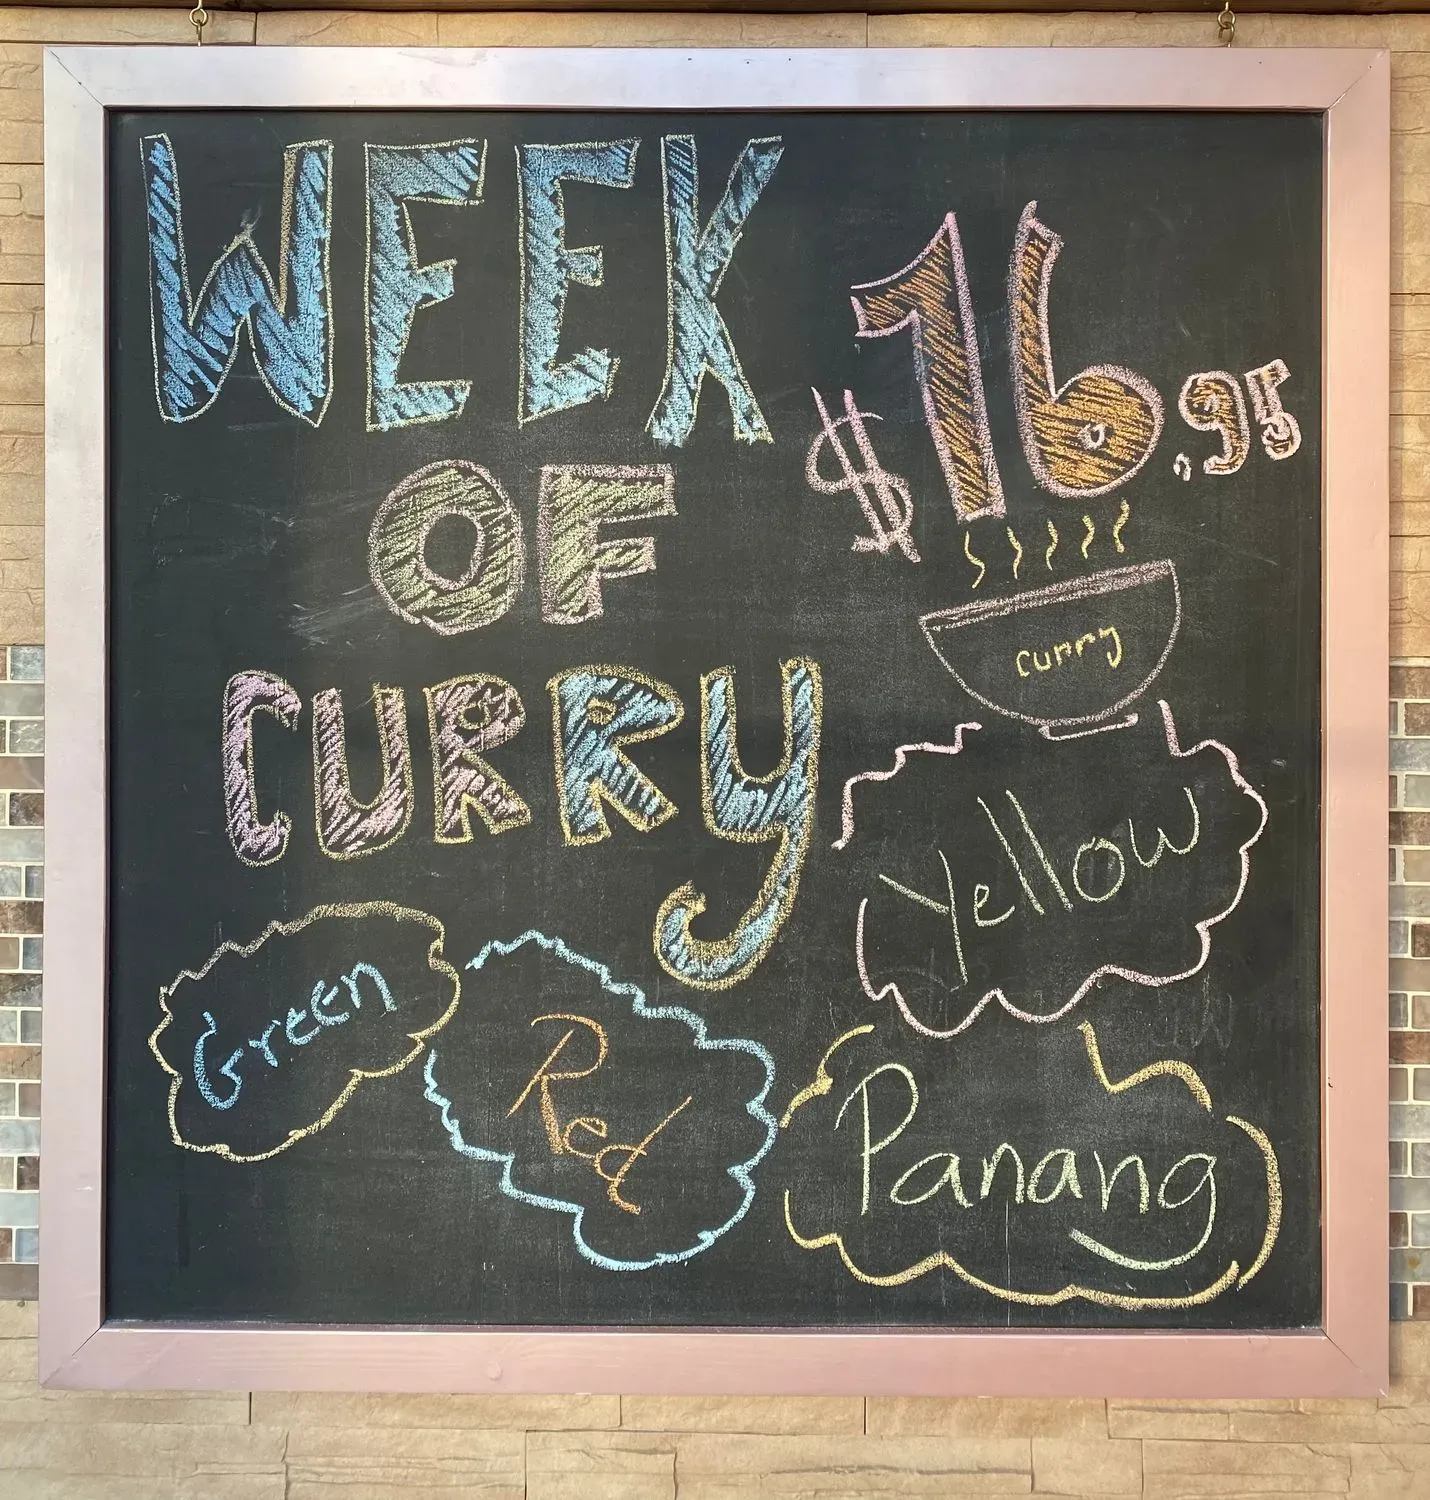 WEEK
OF
CURRY
$16.95
curry
Yellow
Green
Red
Panang